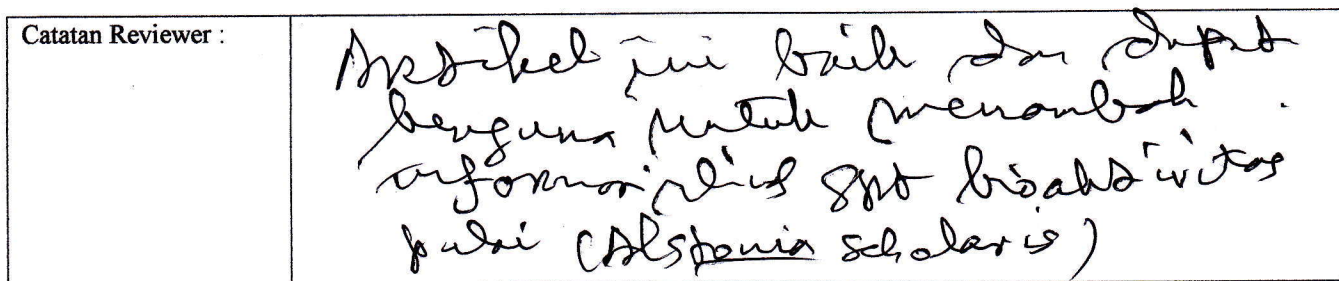 Catatan Reviewer :
Artikel ini baik dan dapat
berguna untuk menambah
informasi spt bioaktivitas
pulai (Alstonia scholaris)